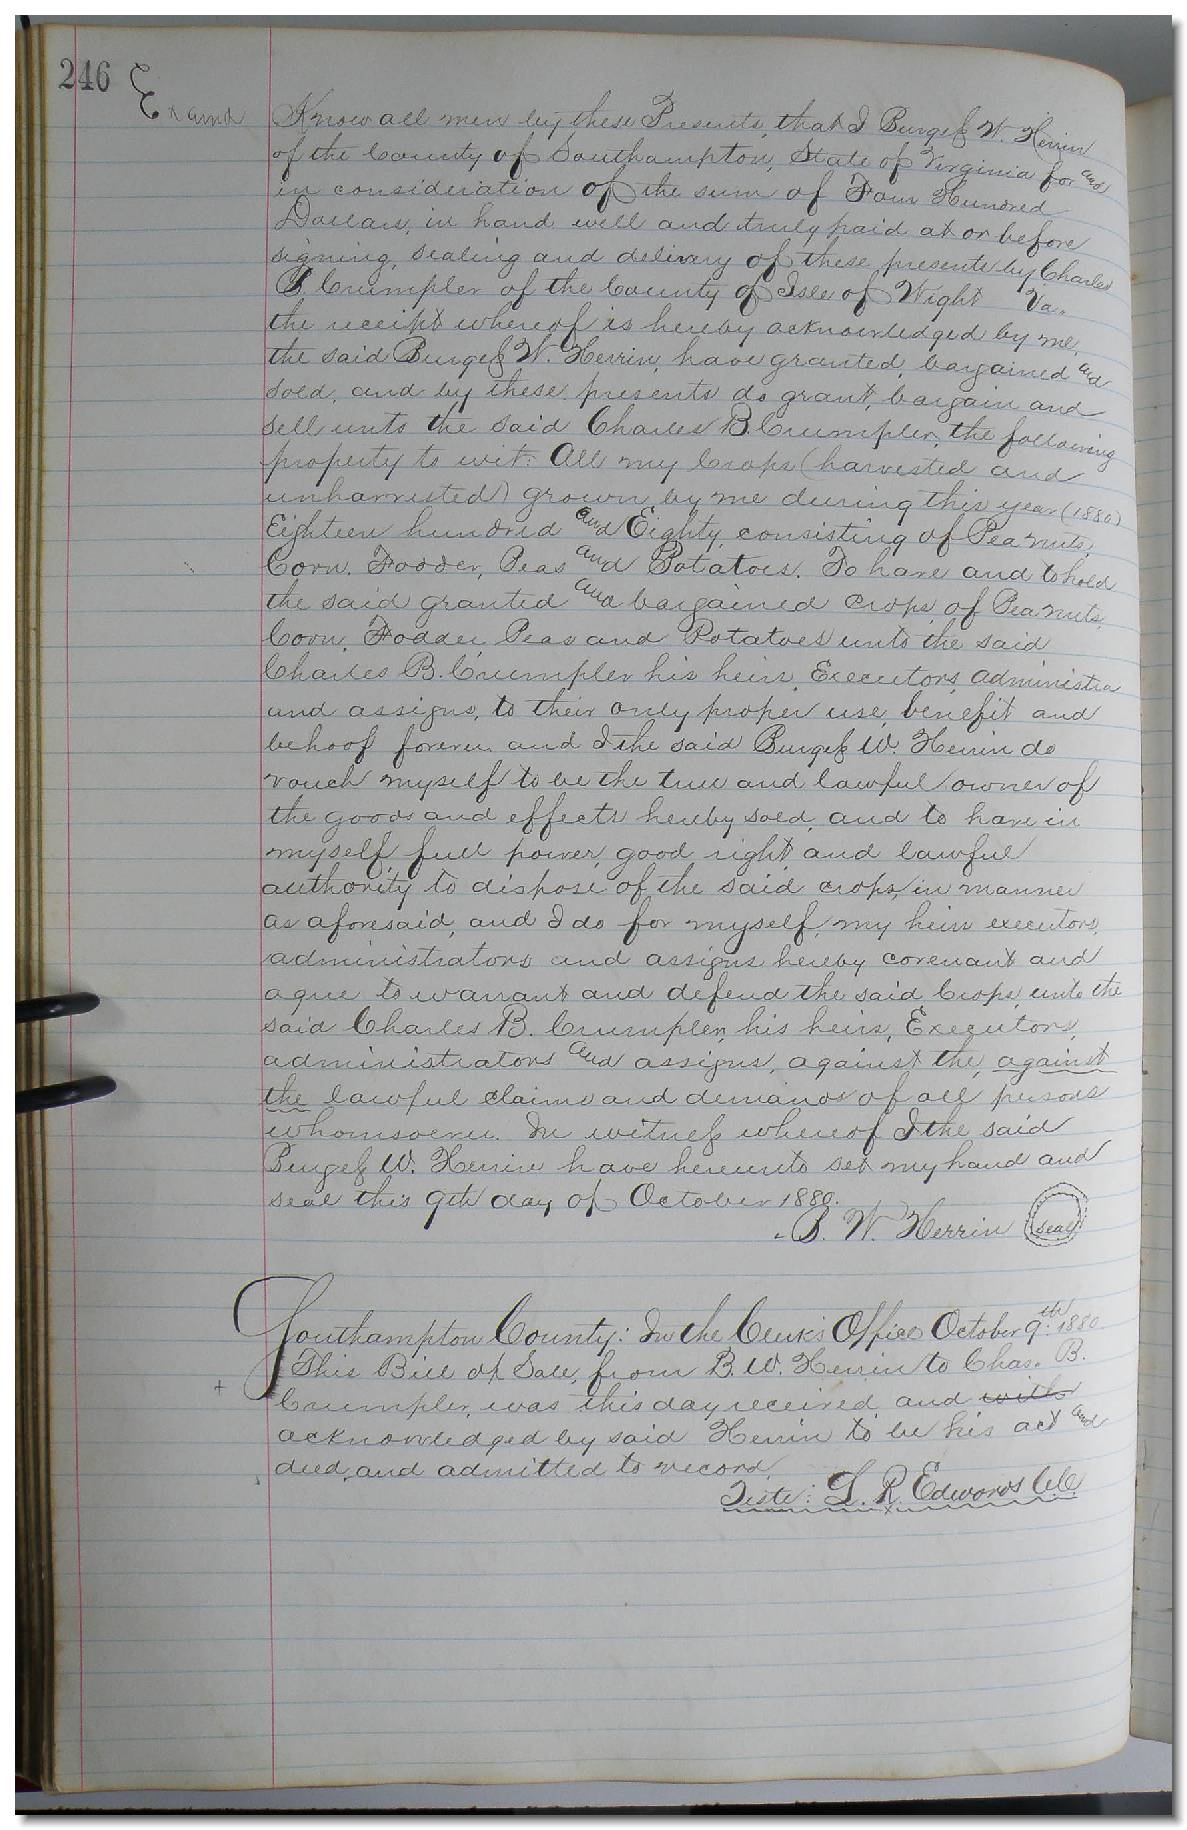 246
Examd
Know all men by these Presents, that I Burgess W. Herrin
of the County of Southampton, State of Virginia for and
in consideration of the sum of Four Hundred
Dollars, in hand well and truly paid at or before
signing, sealing and delivery of these presents by Charles
B Crumpler of the County of Isle of Wight Va.
the receipt whereof is hereby acknowledged by me,
the said Burgess W. Herrin, have granted, bargained and
sold, and by these presents do grant, bargain and
sell unto the said Charles B. Crumpler, the following
property to wit: All my Crops (harvested and
unharvested) grown by me during this year (1880)
Eighteen hundred and Eighty, consisting of Pea nuts,
Corn, Fodder, Peas and Potatoes. To have and to hold
the said granted and bargained crops, of Pea nuts,
Corn, Fodder, Peas and Potatoes unto the said
Charles B. Crumpler his heirs, Executors, administra
and assigns, to their only proper use, benefit and
behoof forever and I the said Burgess W. Herrin do
vouch myself to be the true and lawful owner of
the goods and effects hereby sold, and to have in
myself full power, good right, and lawful
authority to dispose of the said crops, in manner
as aforesaid, and I do for myself, my heirs executors,
administrators and assigns hereby covenant and
agree to warrant and defend the said Crops, unto the
said Charles B. Crumpler, his heirs, Executors,
administrators and assigns, against the, against
the lawful claims and demands of all persons
whomsoever. In witness whereof I the said
Burgess W. Herrin have hereunto set my hand and
seal this 9th day of October 1880.
B. W. Herrin seal
Southampton County: In the Clerk's Office October 9th 1880
This Bill of Sale, from B. W. Herrin to Chas. B.
Crumpler, was this day received and with
acknowledged by said Herrin to be his act and
deed, and admitted to record.
Teste: L. R. Edwards C.C.